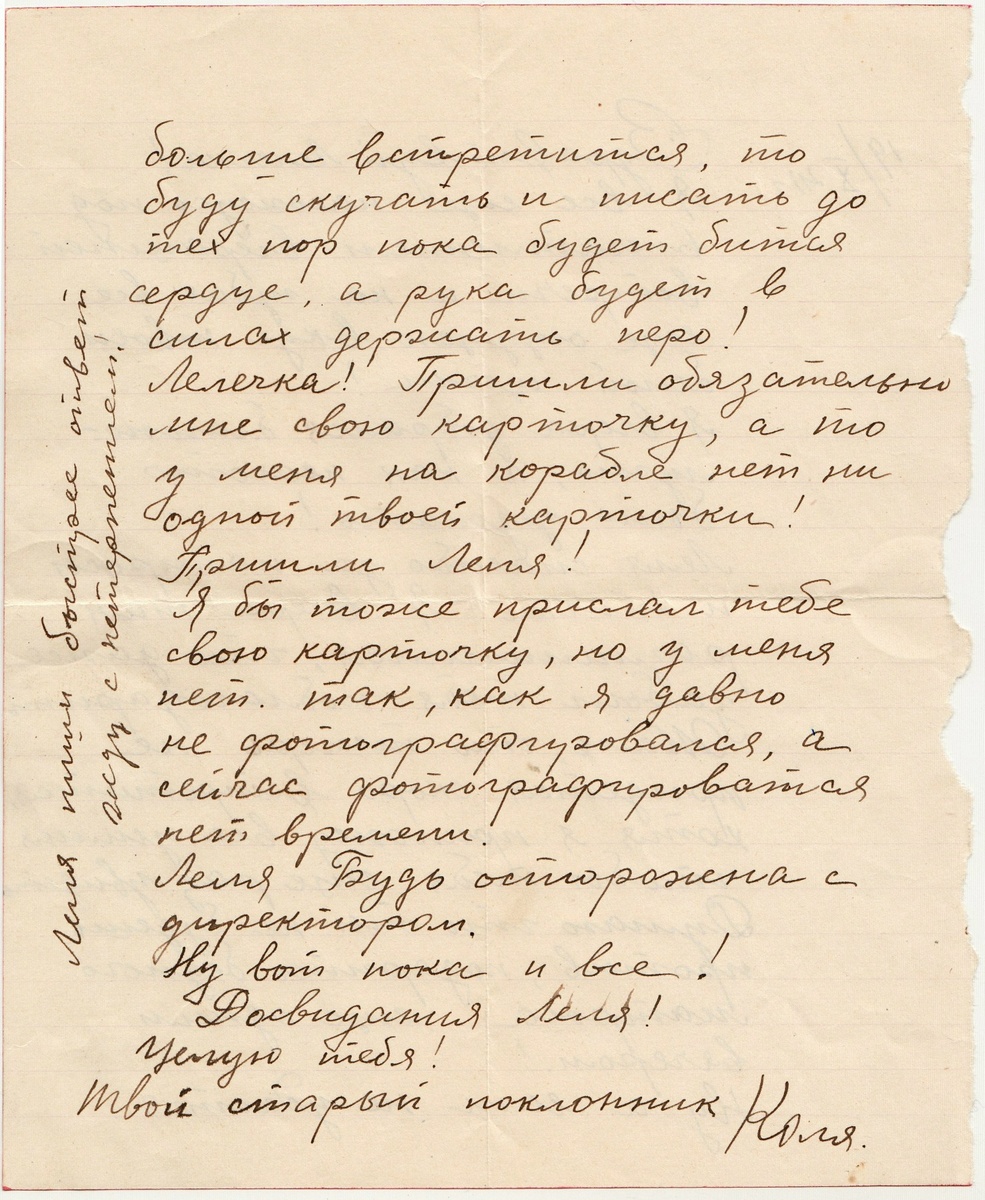 больше встретится, то
буду скучать и писать до
тех пор пока будет бится
сердце, а рука будет в
силах держать перо!
Лелечка! Пришли обязательно
мне свою карточку, а то
у меня на корабле нет ни
одной твоей карточки!
Пришли Леля!
Я бы тоже прислал тебе
свою карточку, но у меня
нет. так, как я давно
не фотографировался, а
сейчас фотографироватся
нет времени.
Леля Будь осторожена с
директором.
Ну вот пока и все!
Досвидания Леля!
Целую тебя!
Твой старый поклонник
Коля.
Леля пиши быстрее ответ
жду с нетерпением!